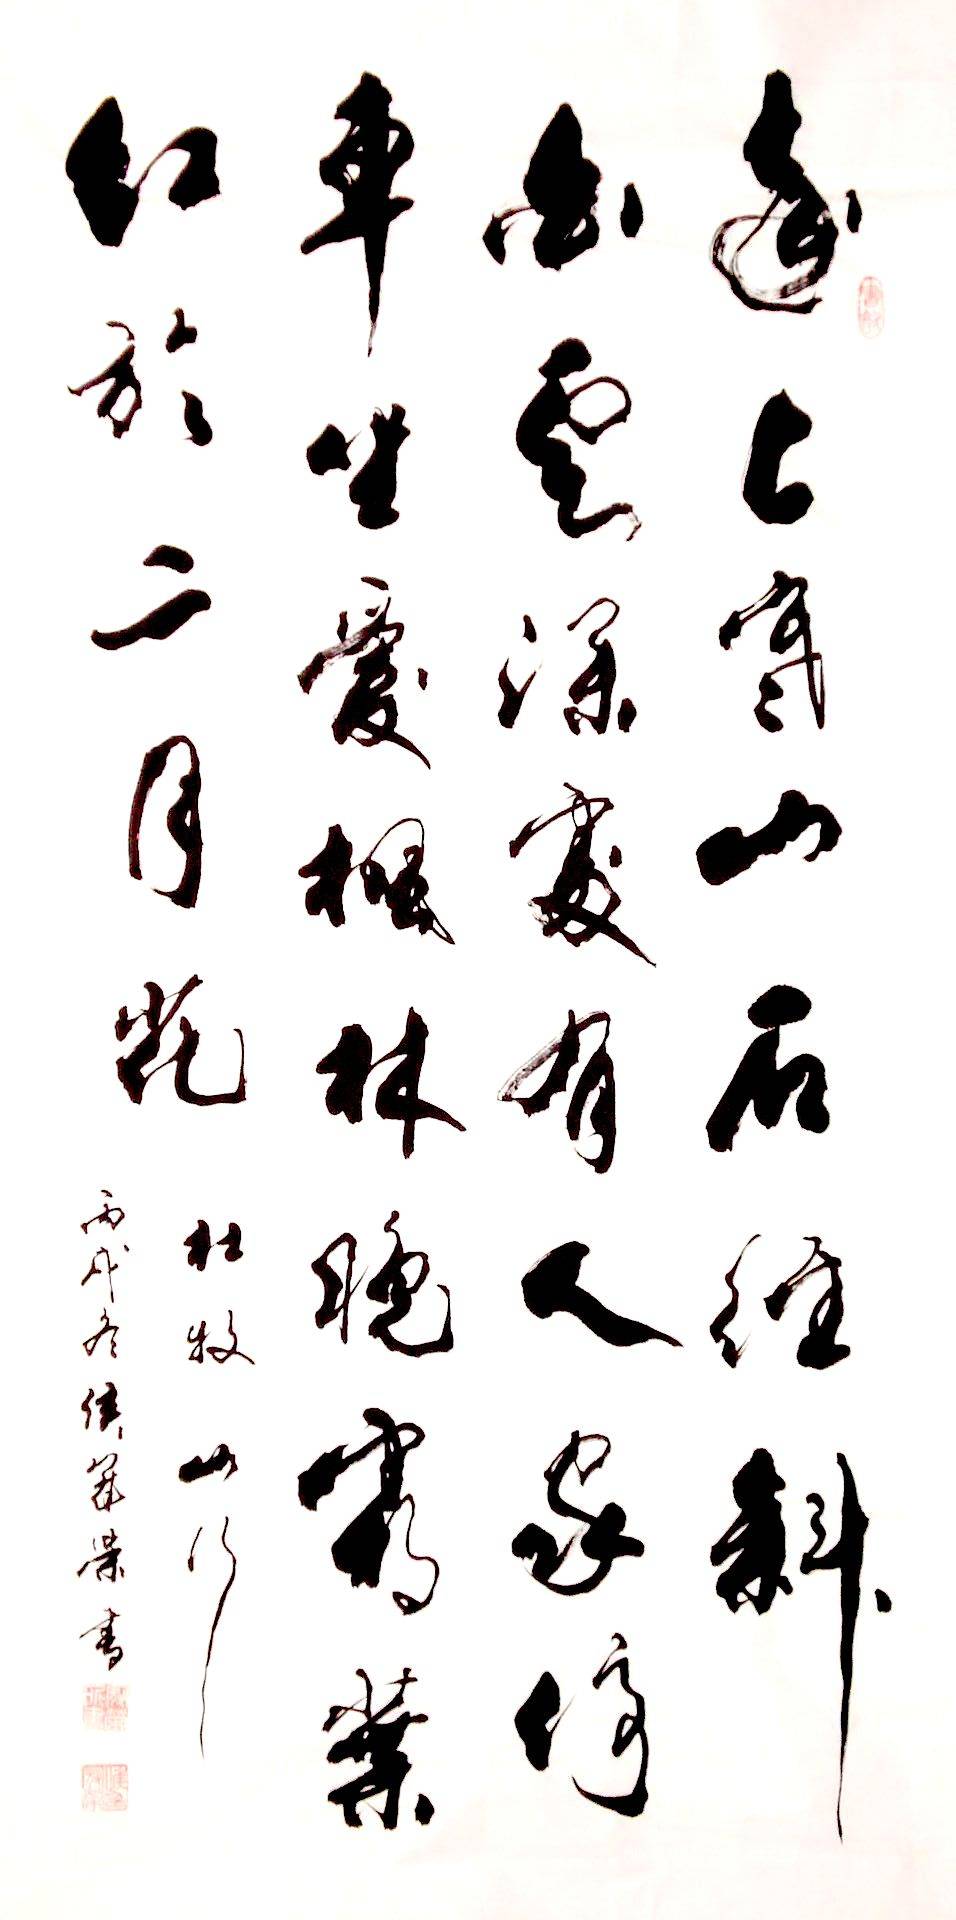 遠上寒山石徑斜
白雲深處有人家停
車坐愛楓林晚霜葉
紅於二月花
杜牧山行
丙戌冬侯榮書